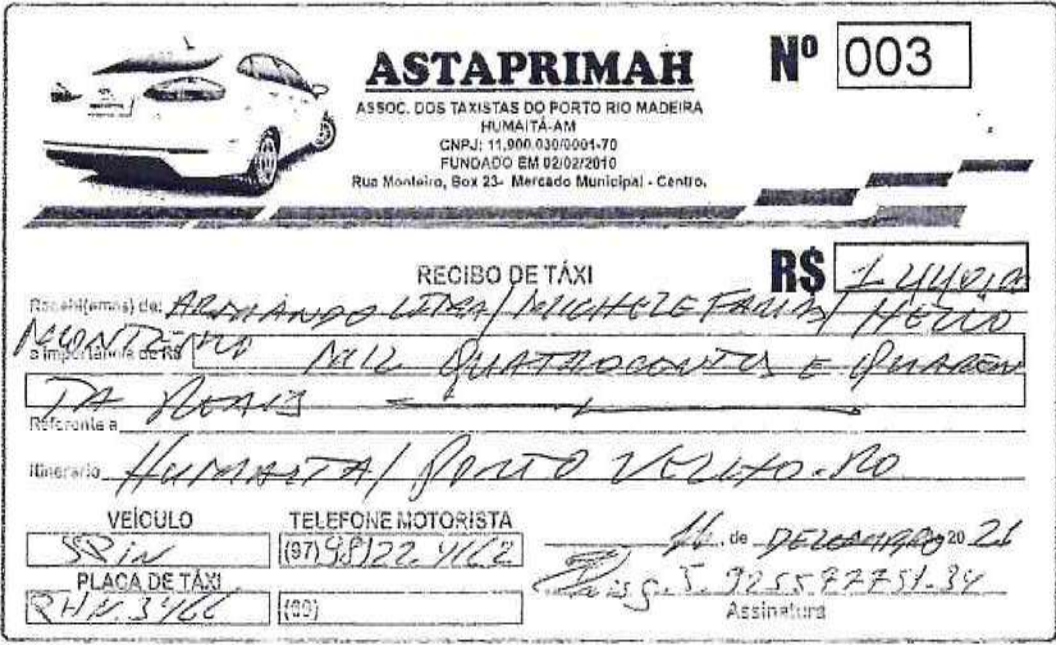 ASTAPRIMAH
Nº 003
ASSOC. DOS TAXISTAS DO PORTO RIO MADEIRA
HUMAITÁ-AM
CNPJ: 11.900.030/0001-70
FUNDADO EM 02/02/2010
Rua Monteiro, Box 23- Mercado Municipal - Centro.
RECIBO DE TÁXI
R$ 1.440,00
Recebi(emos) de: ARMANDO LIMA/ MICHELE FARIAS/ HÉLIO
MONTEIRO
a importância de R$ MIL QUATROCENTOS E QUAREN
TA REAIS
Referente a
Itinerario HUMAITA/ PORTO VELHO-RO
VEÍCULO TELEFONE MOTORISTA
SPIN (97) 98122 4162
16 de DEZEMBRO 20 21
PLACA DE TÁXI
Assinatura